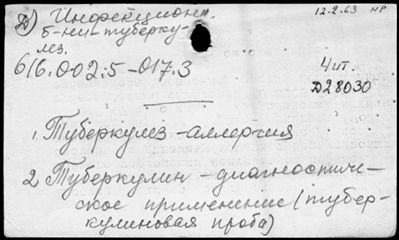 Д) Инфекцион.
12.2.63 НР
б-ни-туберку-
лез.
616.002:5-017.3
4 шт.
Д28030
1. Туберкулез-аллергия
2. Туберкулин-диагностиче-
ское применение (тубер-
кулиновая проба)